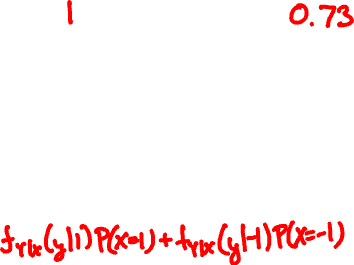 1 0.73
f_{Y|X}(y|1)P(X=1)+f_{Y|X}(y|-1)P(X=-1)